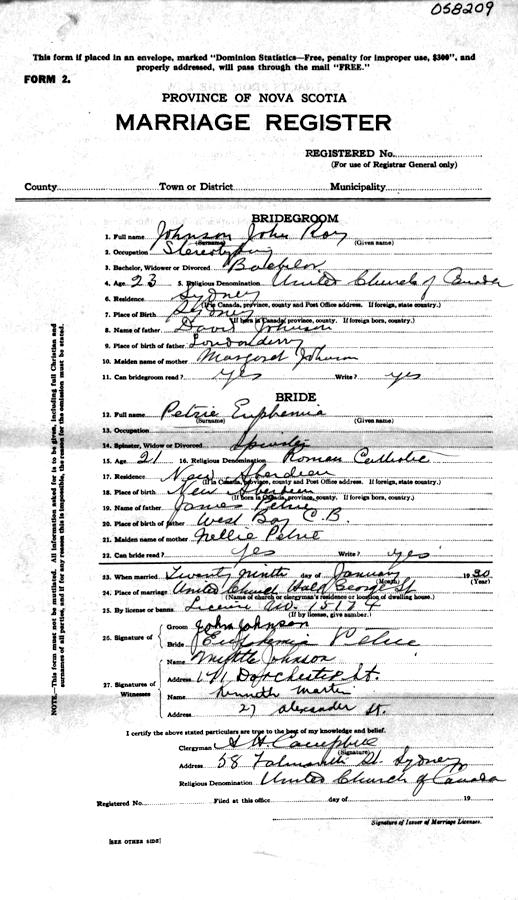 058209
This form if placed in an envelope, marked "Dominion Statistics—Free, penalty for improper use, $300", and
properly addressed, will pass through the mail "FREE."
FORM 2.
PROVINCE OF NOVA SCOTIA
MARRIAGE REGISTER
REGISTERED No.
(For use of Registrar General only)
County Town or District Municipality
BRIDEGROOM
1. Full name Johnson John Roy
(Surname) (Given name)
2. Occupation Stereotyping
3. Bachelor, Widower or Divorced Bachelor
4. Age 23 5. Religious Denomination United Church of Canada
6. Residence Sydney
(If in Canada, province, county and Post Office address. If foreign, state country.)
7. Place of Birth Sydney
(If born in Canada, province, county. If foreign, country.)
8. Name of father David Johnson
9. Place of birth of father Londonderry
10. Maiden name of mother Margaret Johnson
11. Can bridegroom read? Yes Write? yes
BRIDE
12. Full name Petrie Euphemia
(Surname) (Given name)
13. Occupation
14. Spinster, Widow or Divorced Spinster
15. Age 21 16. Religious Denomination Roman Catholic
17. Residence New Aberdeen
(If in Canada, province, county and Post Office address. If foreign, country.)
18. Place of birth New Aberdeen
(If born in Canada, province, county. If foreign, country.)
19. Name of father James Petrie
20. Place of birth of father West Bay C.B.
21. Maiden name of mother Nellie Petrie
22. Can bride read? Yes Write? yes
23. When married Twenty ninth day of January 1930
(Month) (Year)
24. Place of marriage United Church Hald George St
(Name of church or clergyman's residence or location of dwelling house.)
25. By license or banns License No. 15174
(If by license, give number.)
26. Signature of
Groom John Johnson
Bride Euphemia Petrie
27. Signatures of Witnesses
Name Myrtle Johnson
Address 171 Dorchester St.
Name Kenneth Martin
Address 27 Alexander St.
I certify the above stated particulars are true to the best of my knowledge and belief.
Clergyman A H Campbell
(Signature)
Address 58 Falmouth St. Sydney
Religious Denomination United Church of Canada
Registered No. Filed at this office day of 19
Signature of Issuer of Marriage Licenses.
[SEE OTHER SIDE]
NOTE.—This form must not be mutilated. All information asked for is to be given, including full Christian and
surnames of all parties, and if for any reason this is impossible, the reason for the omission must be stated.